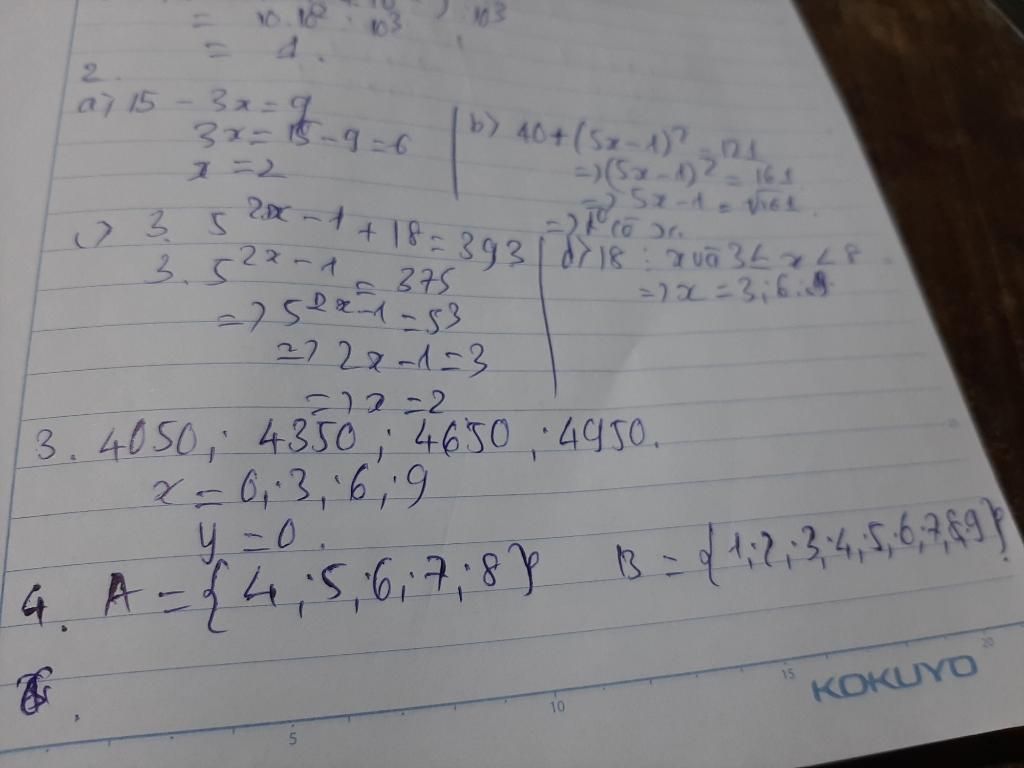 = 10.10² : 10³
= 1.
2.
a) 15 - 3x = 9
3x = 15 - 9 = 6
x = 2
b) 40 + (5x - 1)² = 121
=> (5x - 1)² = 161
=> 5x - 1 = √161.
=> có x.
c) 3. 5^{2x - 1} + 18 = 393
3. 5^{2x - 1} = 375
=> 5^{2x - 1} = 5³
=> 2x - 1 = 3
=> x = 2
d) 18 ⋮ x và 3 ≤ x < 8
=> x = 3; 6
3. 4050; 4350; 4650; 4950.
x = 0; 3; 6; 9
y = 0.
4. A = {4; 5; 6; 7; 8} B = {1; 2; 3; 4; 5; 6; 7; 8; 9}
5 10 15 20
KOKUYO